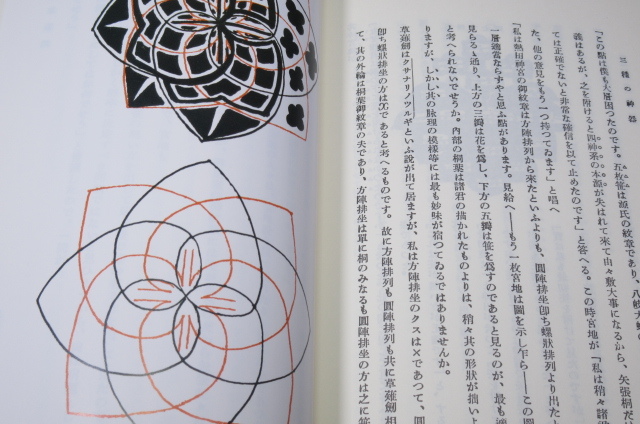 三種の神器
「この點は僕も大層困つたのです。五枚笹は源氏の紋章であり、八岐大蛇の
義はあるが、之を附けると四神系の本源が失はれて來て由々敷大事になるから、矢張桐だけ
ては正確でないと非常な確信を以て止めたのです」と答へる。この時宮地が「私は稍々諸
た、他の意見をもう一つ持つてゐます」と唱へ
「私は熱田神宮の御紋章は方陣排列から來たといふよりも、圓陣排坐卽ち螺狀排列より出たと
一層適當ならずやと思ふ點があります。見給へ――もう一枚宮地は圖を示し乍ら――この圖
見らるゝ通り、上方の三瓣は花を爲し、下方の五瓣は笹を爲すのであると見るのが、最も穩
と考へられないでせうか。内部の桐葉は諸君の描かれたものよりは、稍々其の形狀が拙いよ
りますが、しかし其の脉理の模樣等には最も妙味が宿つてゐるではありませんか。
草薙劍はクサナリノツルギといふ說が出て居ますが、私は方陣排坐のクスは×であつて、圓
卽ち螺狀排坐の方は であると考へるものです。故に方陣排列も圓陣排列も共に草薙劍相
て、其の外輪は桐葉御紋章の夫であり、方陣排坐は單に桐のみなるも圓陣排坐の方は之に笹